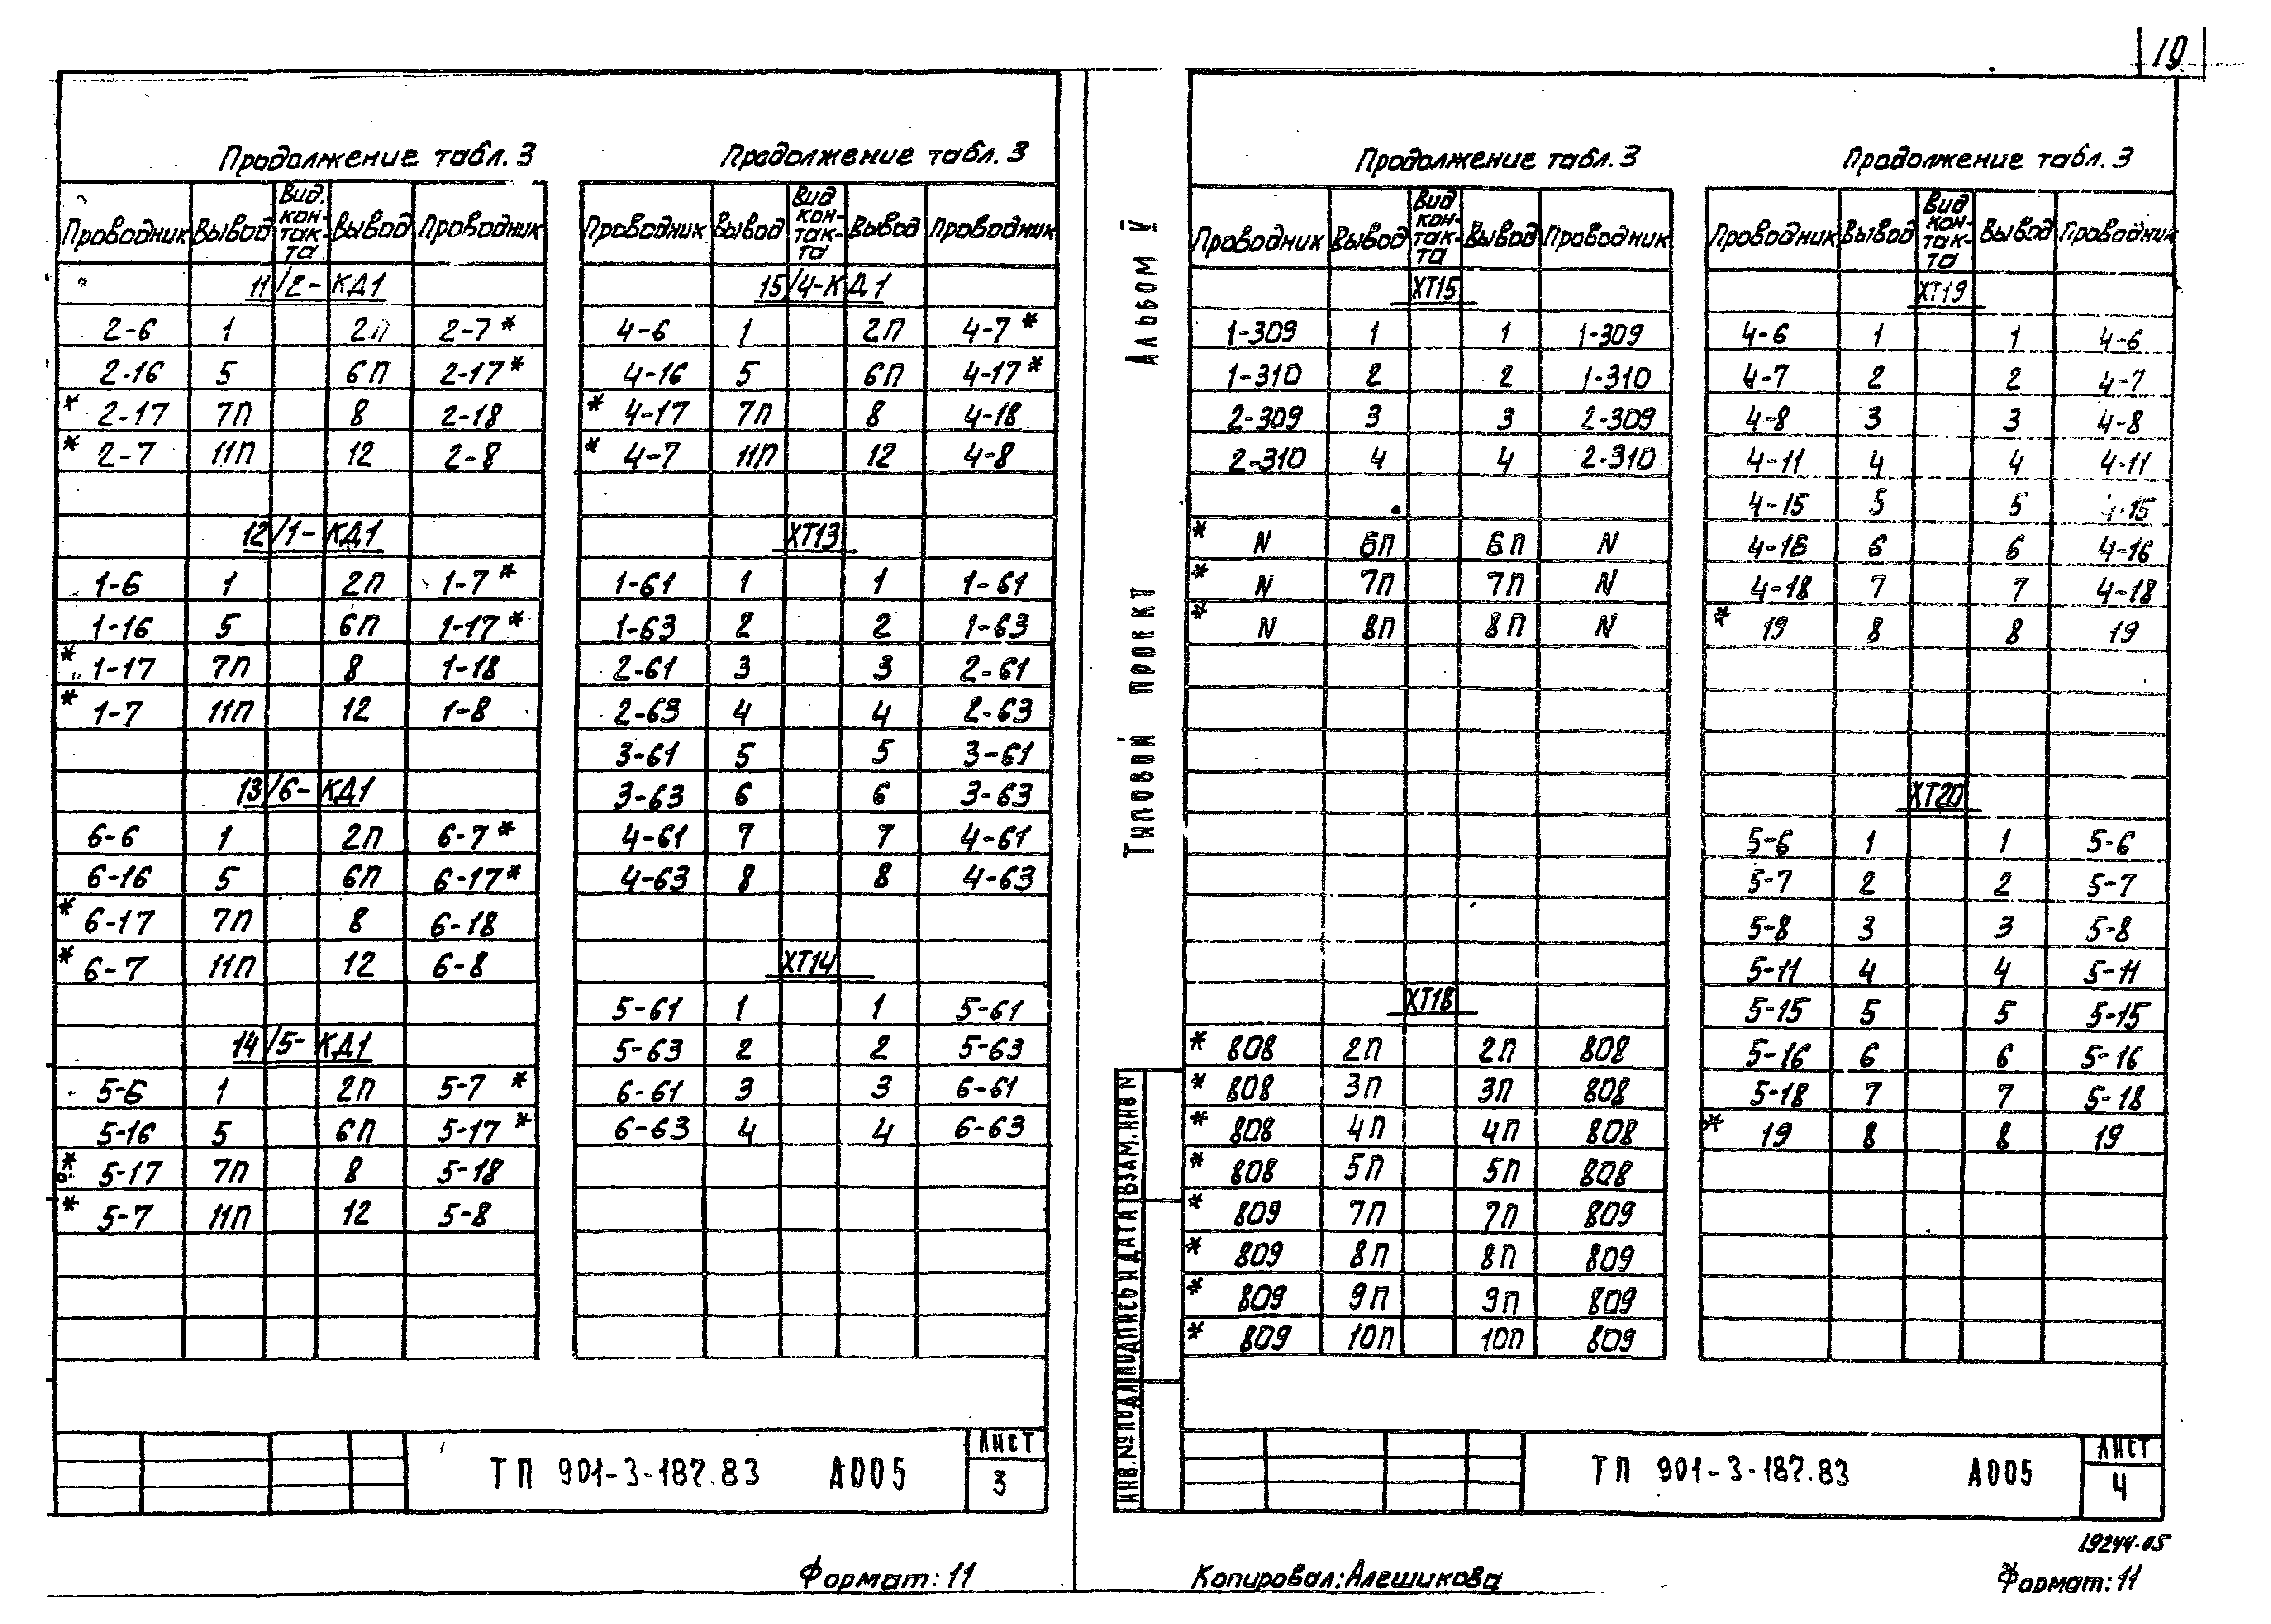 10
Продолжение табл. 3
Проводник Вывод Вид контакта Вывод Проводник
11/2-КД1
2-6 1 2П 2-7*
2-16 5 6П 2-17*
* 2-17 7П 8 2-18
* 2-7 11П 12 2-8
12/1-КД1
1-6 1 2П 1-7*
1-16 5 6П 1-17*
* 1-17 7П 8 1-18
* 1-7 11П 12 1-8
13/6-КД1
6-6 1 2П 6-7*
6-16 5 6П 6-17*
* 6-17 7П 8 6-18
* 6-7 11П 12 6-8
14/5-КД1
5-6 1 2П 5-7*
5-16 5 6П 5-17*
* 5-17 7П 8 5-18
* 5-7 11П 12 5-8
Продолжение табл. 3
Проводник Вывод Вид контакта Вывод Проводник
15/4-КД1
4-6 1 2П 4-7*
4-16 5 6П 4-17*
* 4-17 7П 8 4-18
* 4-7 11П 12 4-8
ХТ13
1-61 1 1 1-61
1-63 2 2 1-63
2-61 3 3 2-61
2-63 4 4 2-63
3-61 5 5 3-61
3-63 6 6 3-63
4-61 7 7 4-61
4-63 8 8 4-63
ХТ14
5-61 1 1 5-61
5-63 2 2 5-63
6-61 3 3 6-61
6-63 4 4 6-63
ТП 901-3-187.83 А005
Лист
3
Формат: 11
Альбом V
Типовой проект
Инв. № подл Подпись и дата Взам. инв N
Продолжение табл. 3
Проводник Вывод Вид контакта Вывод Проводник
ХТ15
1-309 1 1 1-309
1-310 2 2 1-310
2-309 3 3 2-309
2-310 4 4 2-310
* N 6П 6П N
* N 7П 7П N
* N 8П 8П N
ХТ18
* 808 2П 2П 808
* 808 3П 3П 808
* 808 4П 4П 808
* 808 5П 5П 808
* 809 7П 7П 809
* 809 8П 8П 809
* 809 9П 9П 809
* 809 10П 10П 809
Продолжение табл. 3
Проводник Вывод Вид контакта Вывод Проводник
ХТ19
4-6 1 1 4-6
4-7 2 2 4-7
4-8 3 3 4-8
4-11 4 4 4-11
4-15 5 5 4-15
4-16 6 6 4-16
4-18 7 7 4-18
* 19 8 8 19
ХТ20
5-6 1 1 5-6
5-7 2 2 5-7
5-8 3 3 5-8
5-11 4 4 5-11
5-15 5 5 5-15
5-16 6 6 5-16
5-18 7 7 5-18
* 19 8 8 19
ТП 901-3-187.83 А005
Лист
4
19244-05
Копировал: Алешикова
Формат: 11